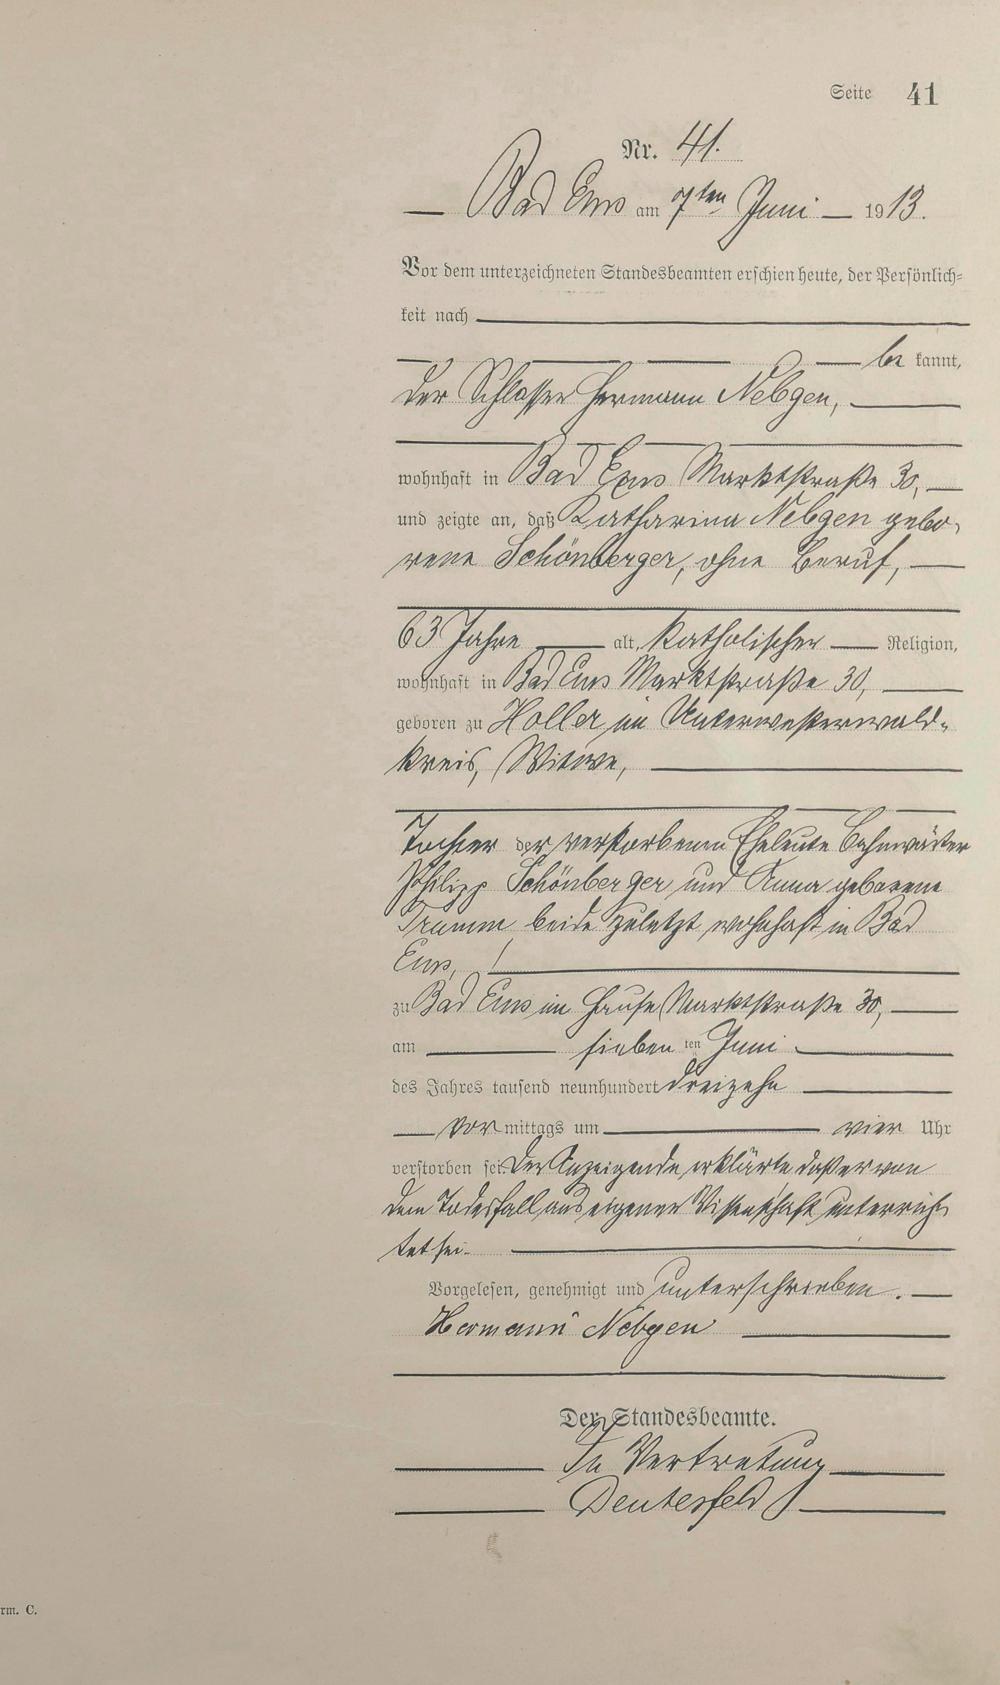 Seite 41
Nr. 41.
Bad Ems am 7ten Juni 1913.
Vor dem unterzeichneten Standesbeamten erschien heute, der Persönlich-
keit nach
be kannt,
der Schlosser Hermann Nebgen,
wohnhaft in Bad Ems Marktstraße 30,
und zeigte an, daß Katharina Nebgen gebo-
rene Schönberger, ohne Beruf,
63 Jahre alt, katholischer Religion,
wohnhaft in Bad Ems Marktstraße 30,
geboren zu Holler im Unterwesterwald-
kreis, Witwe,
Tochter der verstorbenen Eheleute Bahnwärter
Philipp Schönberger und Anna geborene
beide zuletzt wohnhaft in Bad
Ems,
zu Bad Ems im Hause Marktstraße 30,
am sieben ten Juni
des Jahres tausend neunhundert dreizehn
Vor mittags um vier Uhr
verstorben sei. Der Anzeigende erklärte daß er von
dem Todesfall aus eigener Wissenschaft unterrich-
tet sei.
Vorgelesen, genehmigt und unterschrieben.
Hermann Nebgen
Der Standesbeamte.
In Vertretung
Deutesfeld
rm. C.